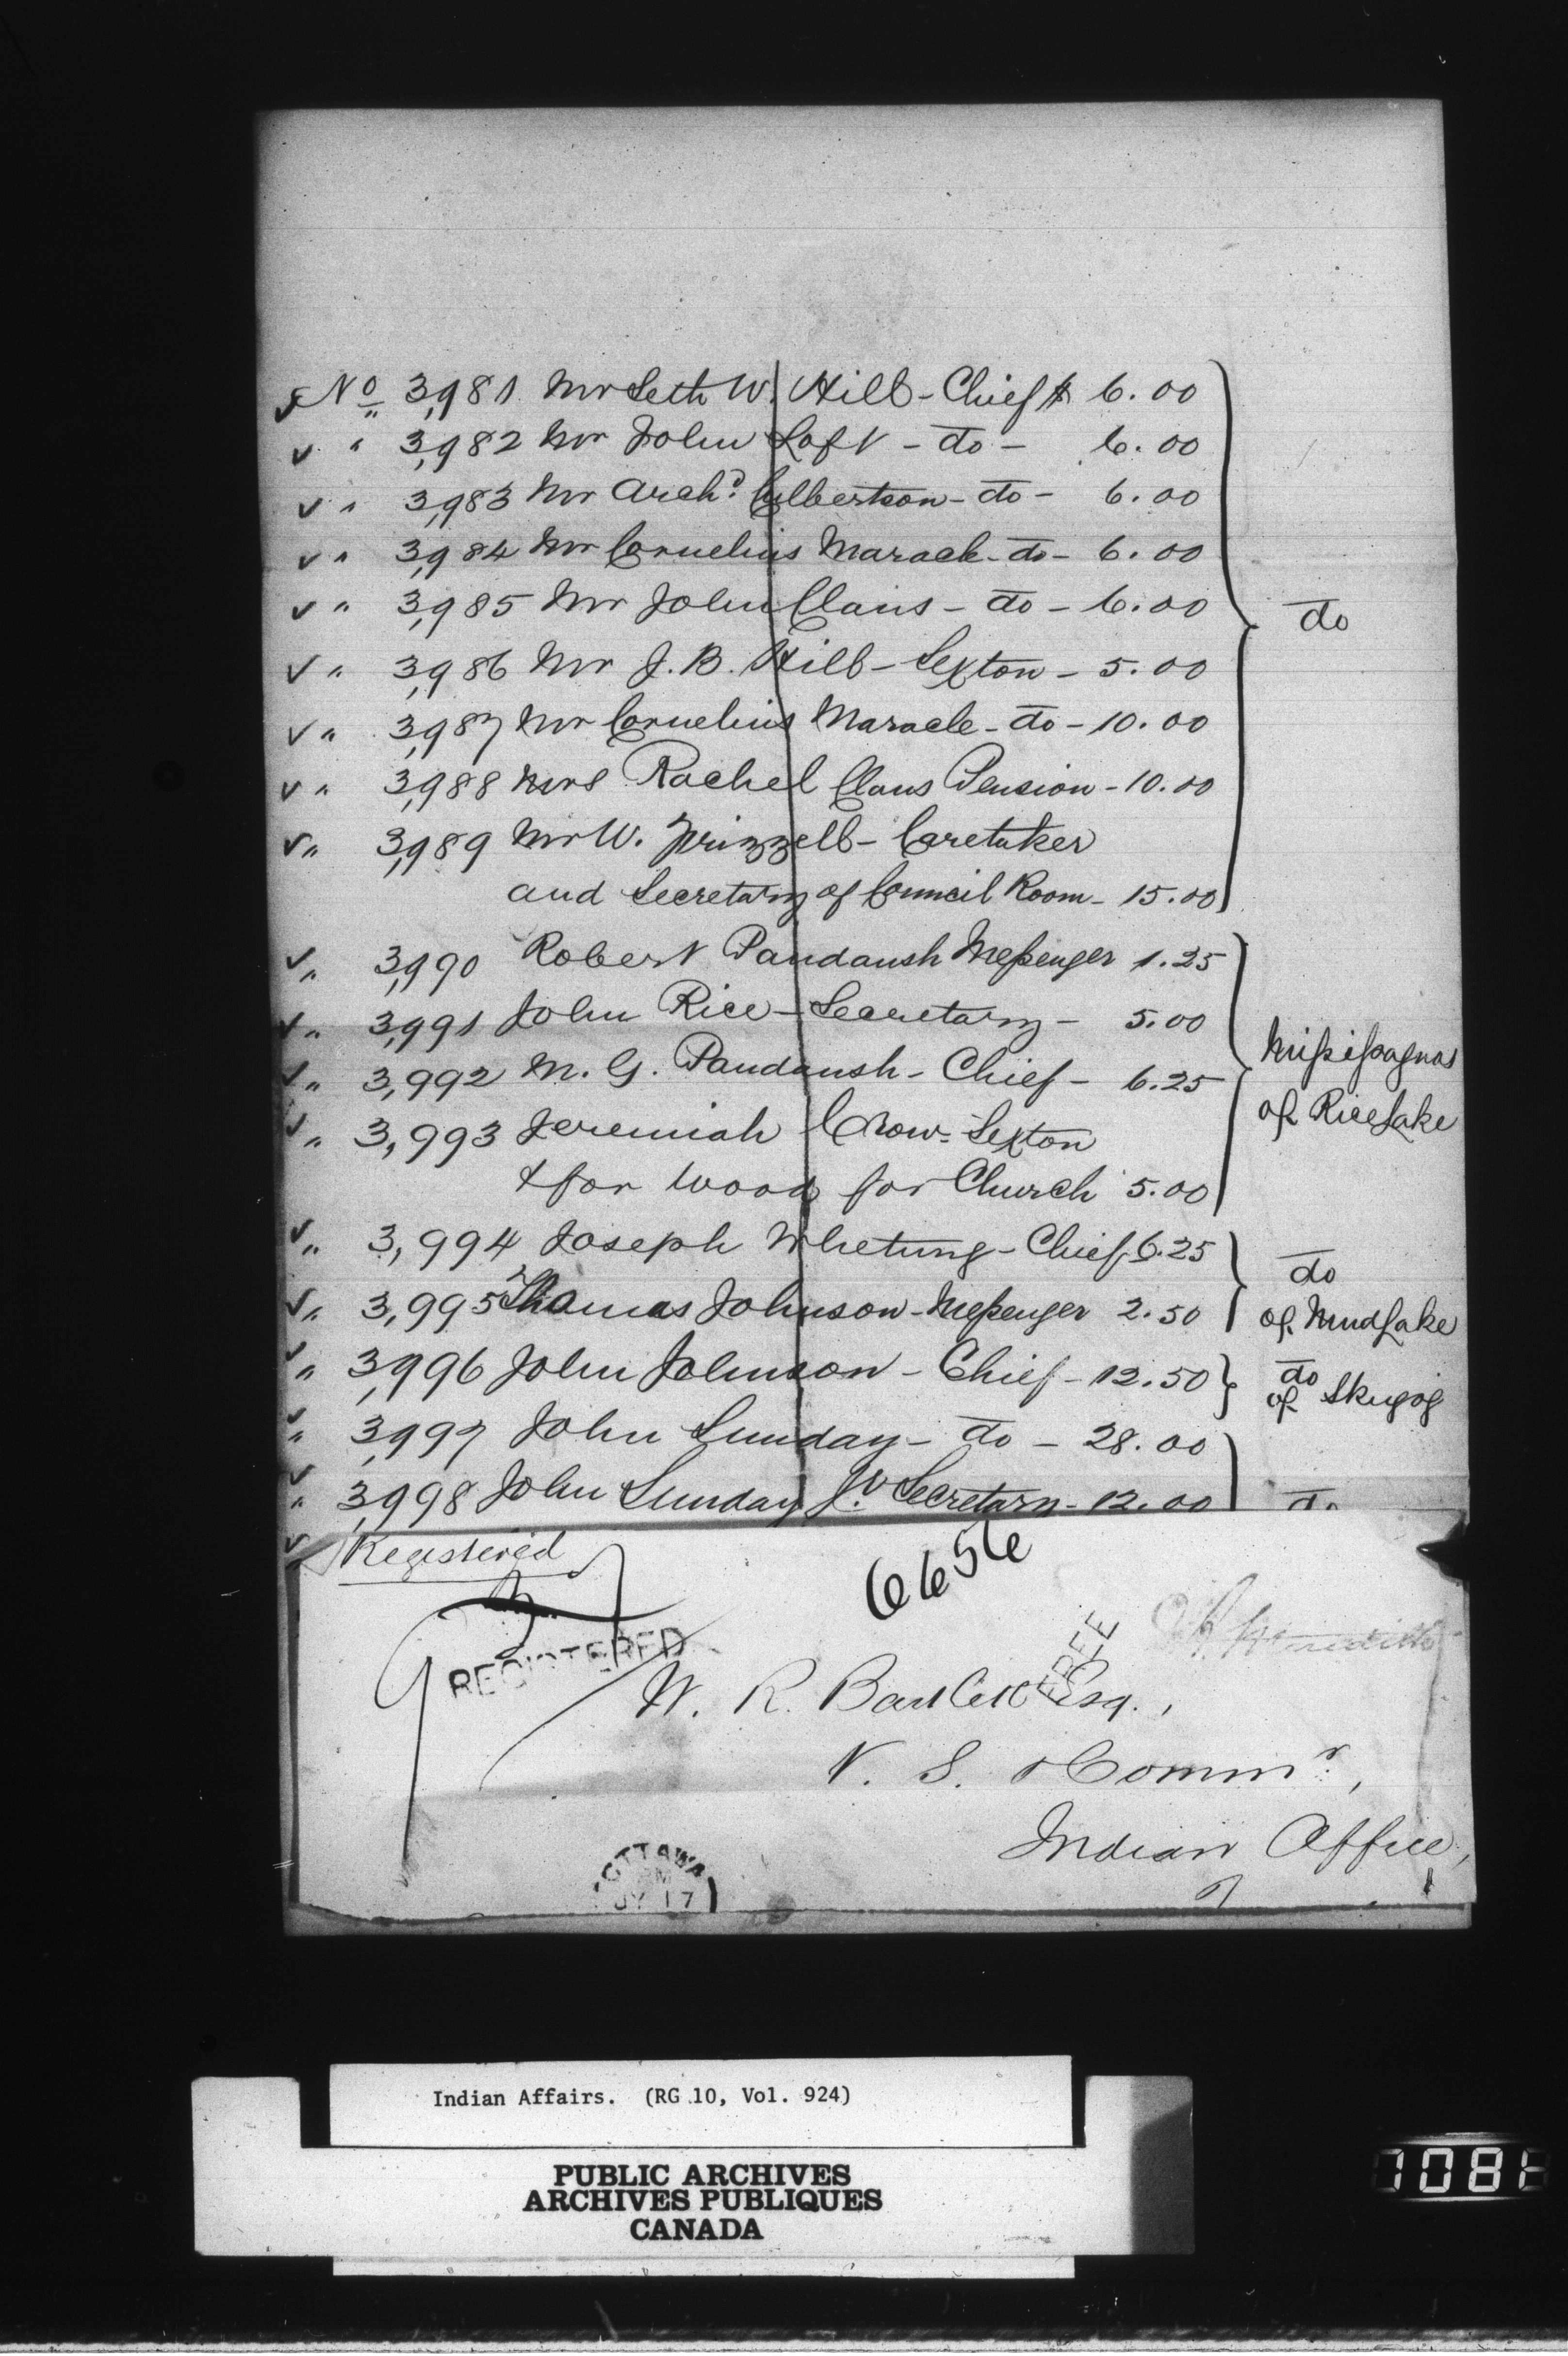 ✓ No 3,981 Mr Seth W. Hill - Chief $ 6.00
✓ " 3,982 Mr John Loft - do - 6.00
✓ " 3,983 Mr Archd. Culbertson - do - 6.00
✓ " 3,984 Mr Cornelius Maracle - do - 6.00
✓ " 3,985 Mr John Claus - do - 6.00
do
✓ " 3,986 Mr J. B. Hill - Sexton - 5.00
✓ " 3,987 Mr Cornelius Maracle - do - 10.00
✓ " 3,988 Mrs Rachel Claus Pension - 10.00
✓ " 3,989 Mr W. Frizzell - Caretaker
and Secretary of Council Room - 15.00
✓ " 3,990 Robert Paudaush Messenger 1.25
✓ " 3,991 John Rice - Secretary - 5.00
✓ " 3,992 M. G. Paudaush - Chief - 6.25
Missisaguas
of Rice Lake
✓ " 3,993 Jeremiah Crow - Sexton
& for wood for Church 5.00
✓ " 3,994 Joseph Whetung - Chief 6.25
✓ " 3,995 Thomas Johnson - Messenger 2.50
do
of Mud Lake
✓ " 3,996 John Johnson - Chief - 12.50
do
of Skugog
✓ " 3,997 John Sunday - do - 28.00
✓ " 3,998 John Sunday Jr. Secretary - 12.00
do
Registered
6656
REGISTERED
FREE
Meredith
W. R. Bartlett Esq.,
V. S. & Commr.,
Indian Office,
OTTAWA
PM
JY 17
Indian Affairs. (RG 10, Vol. 924)
PUBLIC ARCHIVES
ARCHIVES PUBLIQUES
CANADA